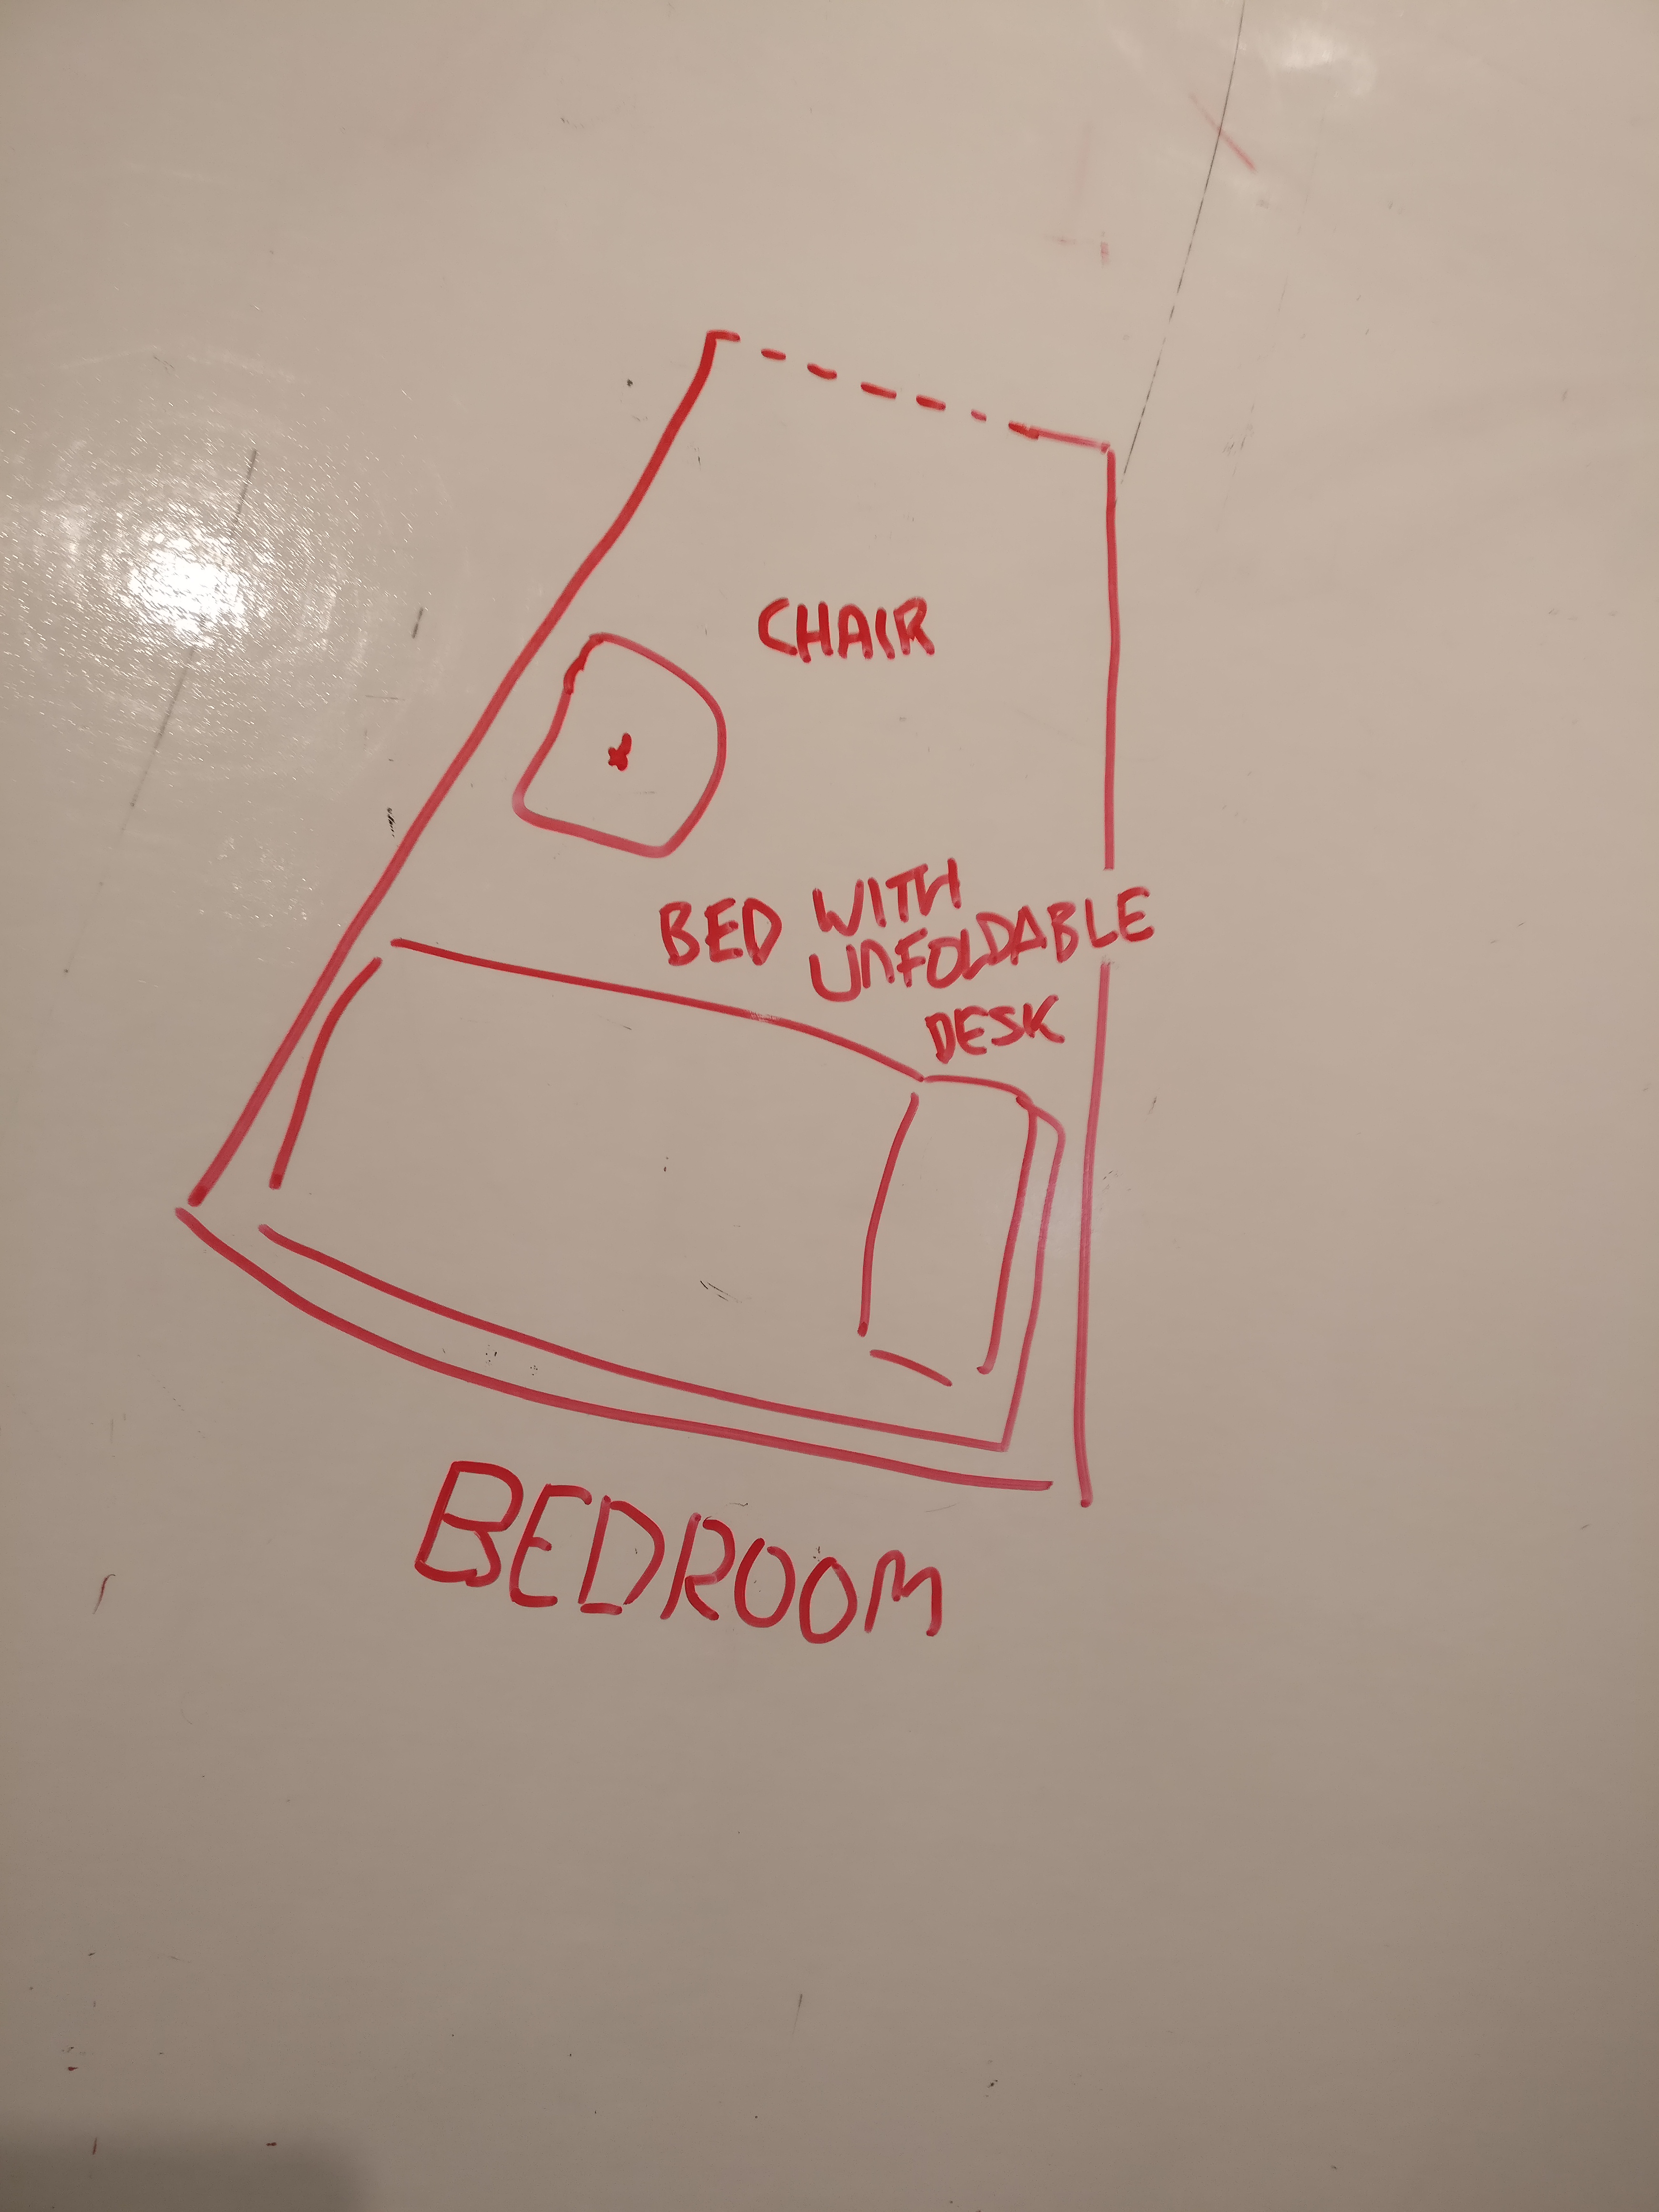 CHAIR
BED WITH
UNFOLDABLE
DESK
BEDROOM